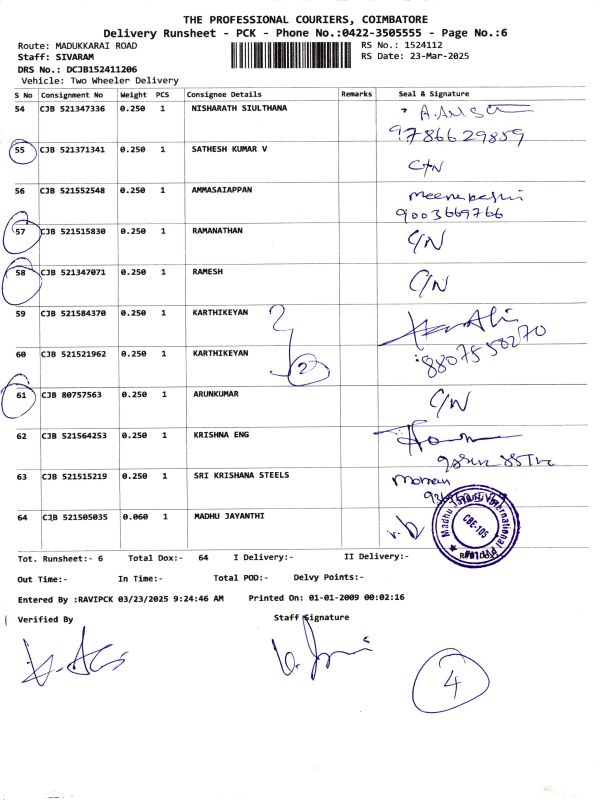 THE PROFESSIONAL COURIERS, COIMBATORE
Delivery Runsheet - PCK - Phone No.:0422-3505555 - Page No.:6
Route: MADUKKARAI ROAD RS No.: 1524112
Staff: SIVARAM RS Date: 23-Mar-2025
DRS No.: DCJB152411206
Vehicle: Two Wheeler Delivery
S No Consignment No Weight PCS Consignee Details Remarks Seal & Signature
54 CJB 521347336 0.250 1 NISHARATH SIULTHANA
9786629859
55 CJB 521371341 0.250 1 SATHESH KUMAR V C/N
56 CJB 521552548 0.250 1 AMMASAIAPPAN
9003669766
57 CJB 521515830 0.250 1 RAMANATHAN C/N
58 CJB 521347071 0.250 1 RAMESH C/N
59 CJB 521584370 0.250 1 KARTHIKEYAN
60 CJB 521521962 0.250 1 KARTHIKEYAN 2 8807550270
61 CJB 80757563 0.250 1 ARUNKUMAR C/N
62 CJB 521564253 0.250 1 KRISHNA ENG
63 CJB 521515219 0.250 1 SRI KRISHANA STEELS
64 CJB 521505035 0.060 1 MADHU JAYANTHI
Madhu Jayanti International
CBE-105
Tot. Runsheet:- 6 Total Dox:- 64 I Delivery:- II Delivery:-
Out Time:- In Time:- Total POD:- Delvy Points:-
Entered By :RAVIPCK 03/23/2025 9:24:46 AM Printed On: 01-01-2009 00:02:16
Verified By Staff Signature
4